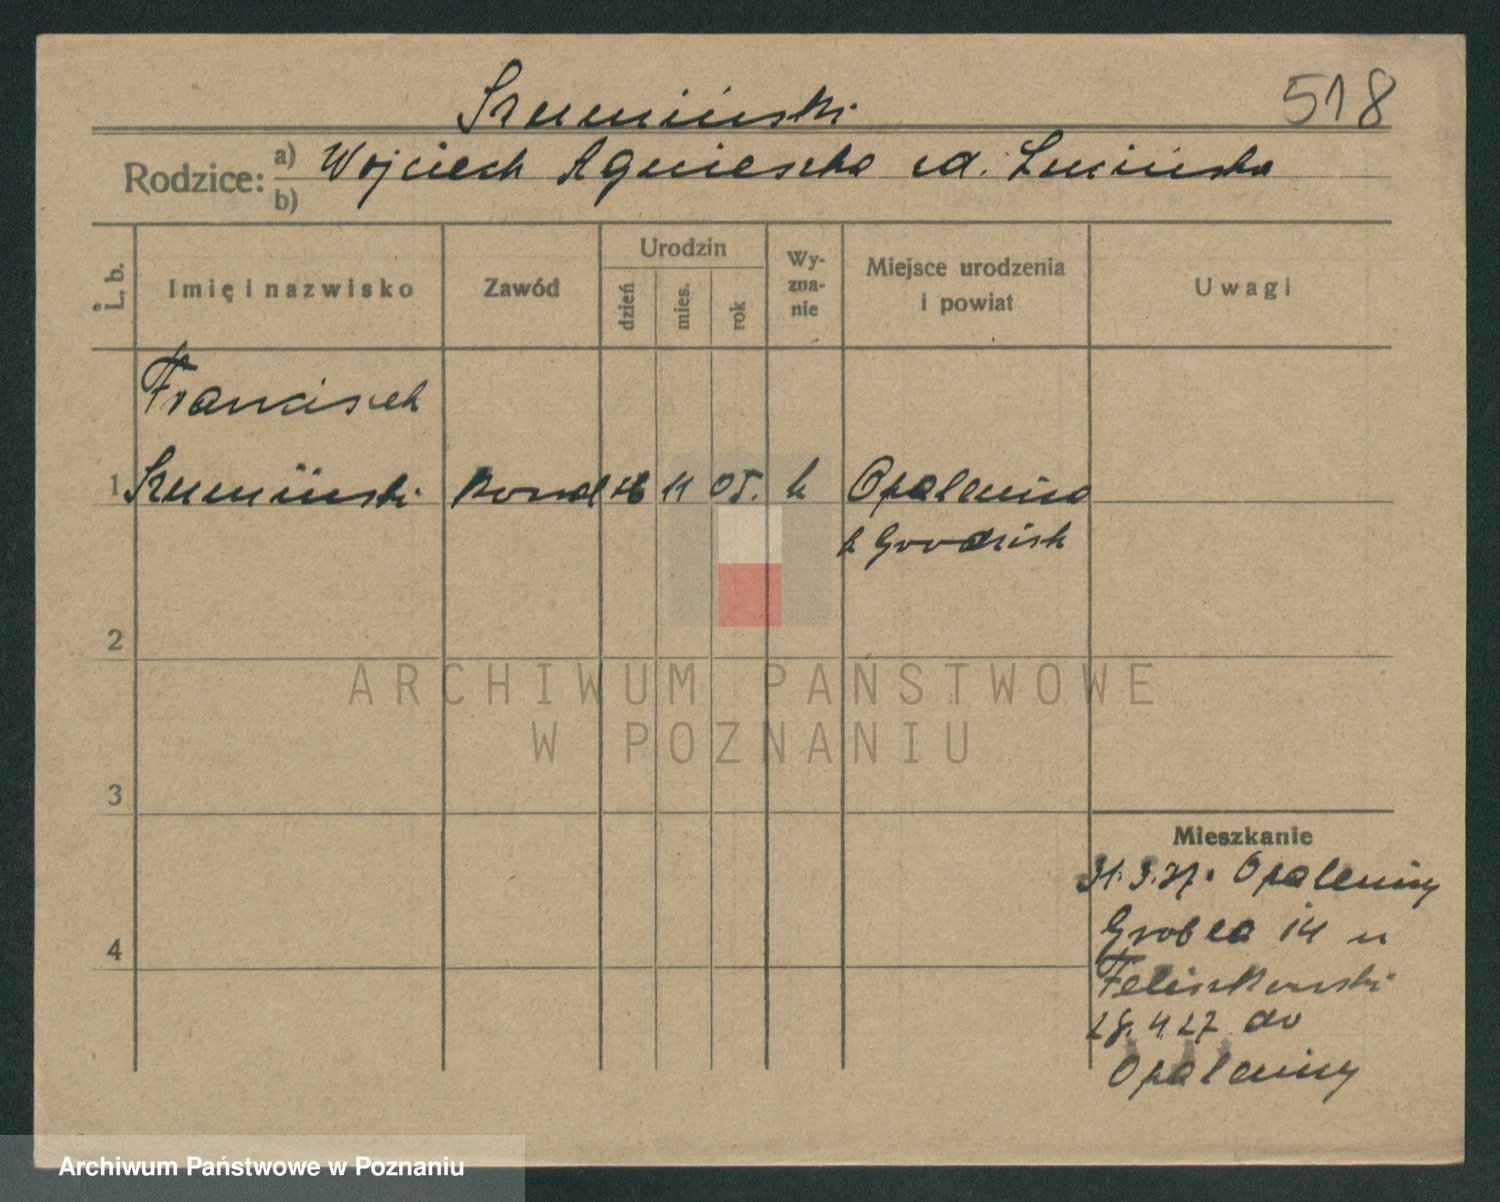 518
Szumiński
Rodzice: a) Wojciech Agnieszka zd.
b)
L. b. Imię i nazwisko Zawód Urodzin dzień mies. rok Wy-zna-nie Miejsce urodzenia i powiat Uwagi
Franciszek
1 Szumiński 11 05. k Opalenica
k Grodzisk
2
ARCHIWUM PAŃSTWOWE
W POZNANIU
3
Mieszkanie
31.3.27. Opalenicy
Grobla 14 u
4
28.4.27 do
Opalenicy
Archiwum Państwowe w Poznaniu